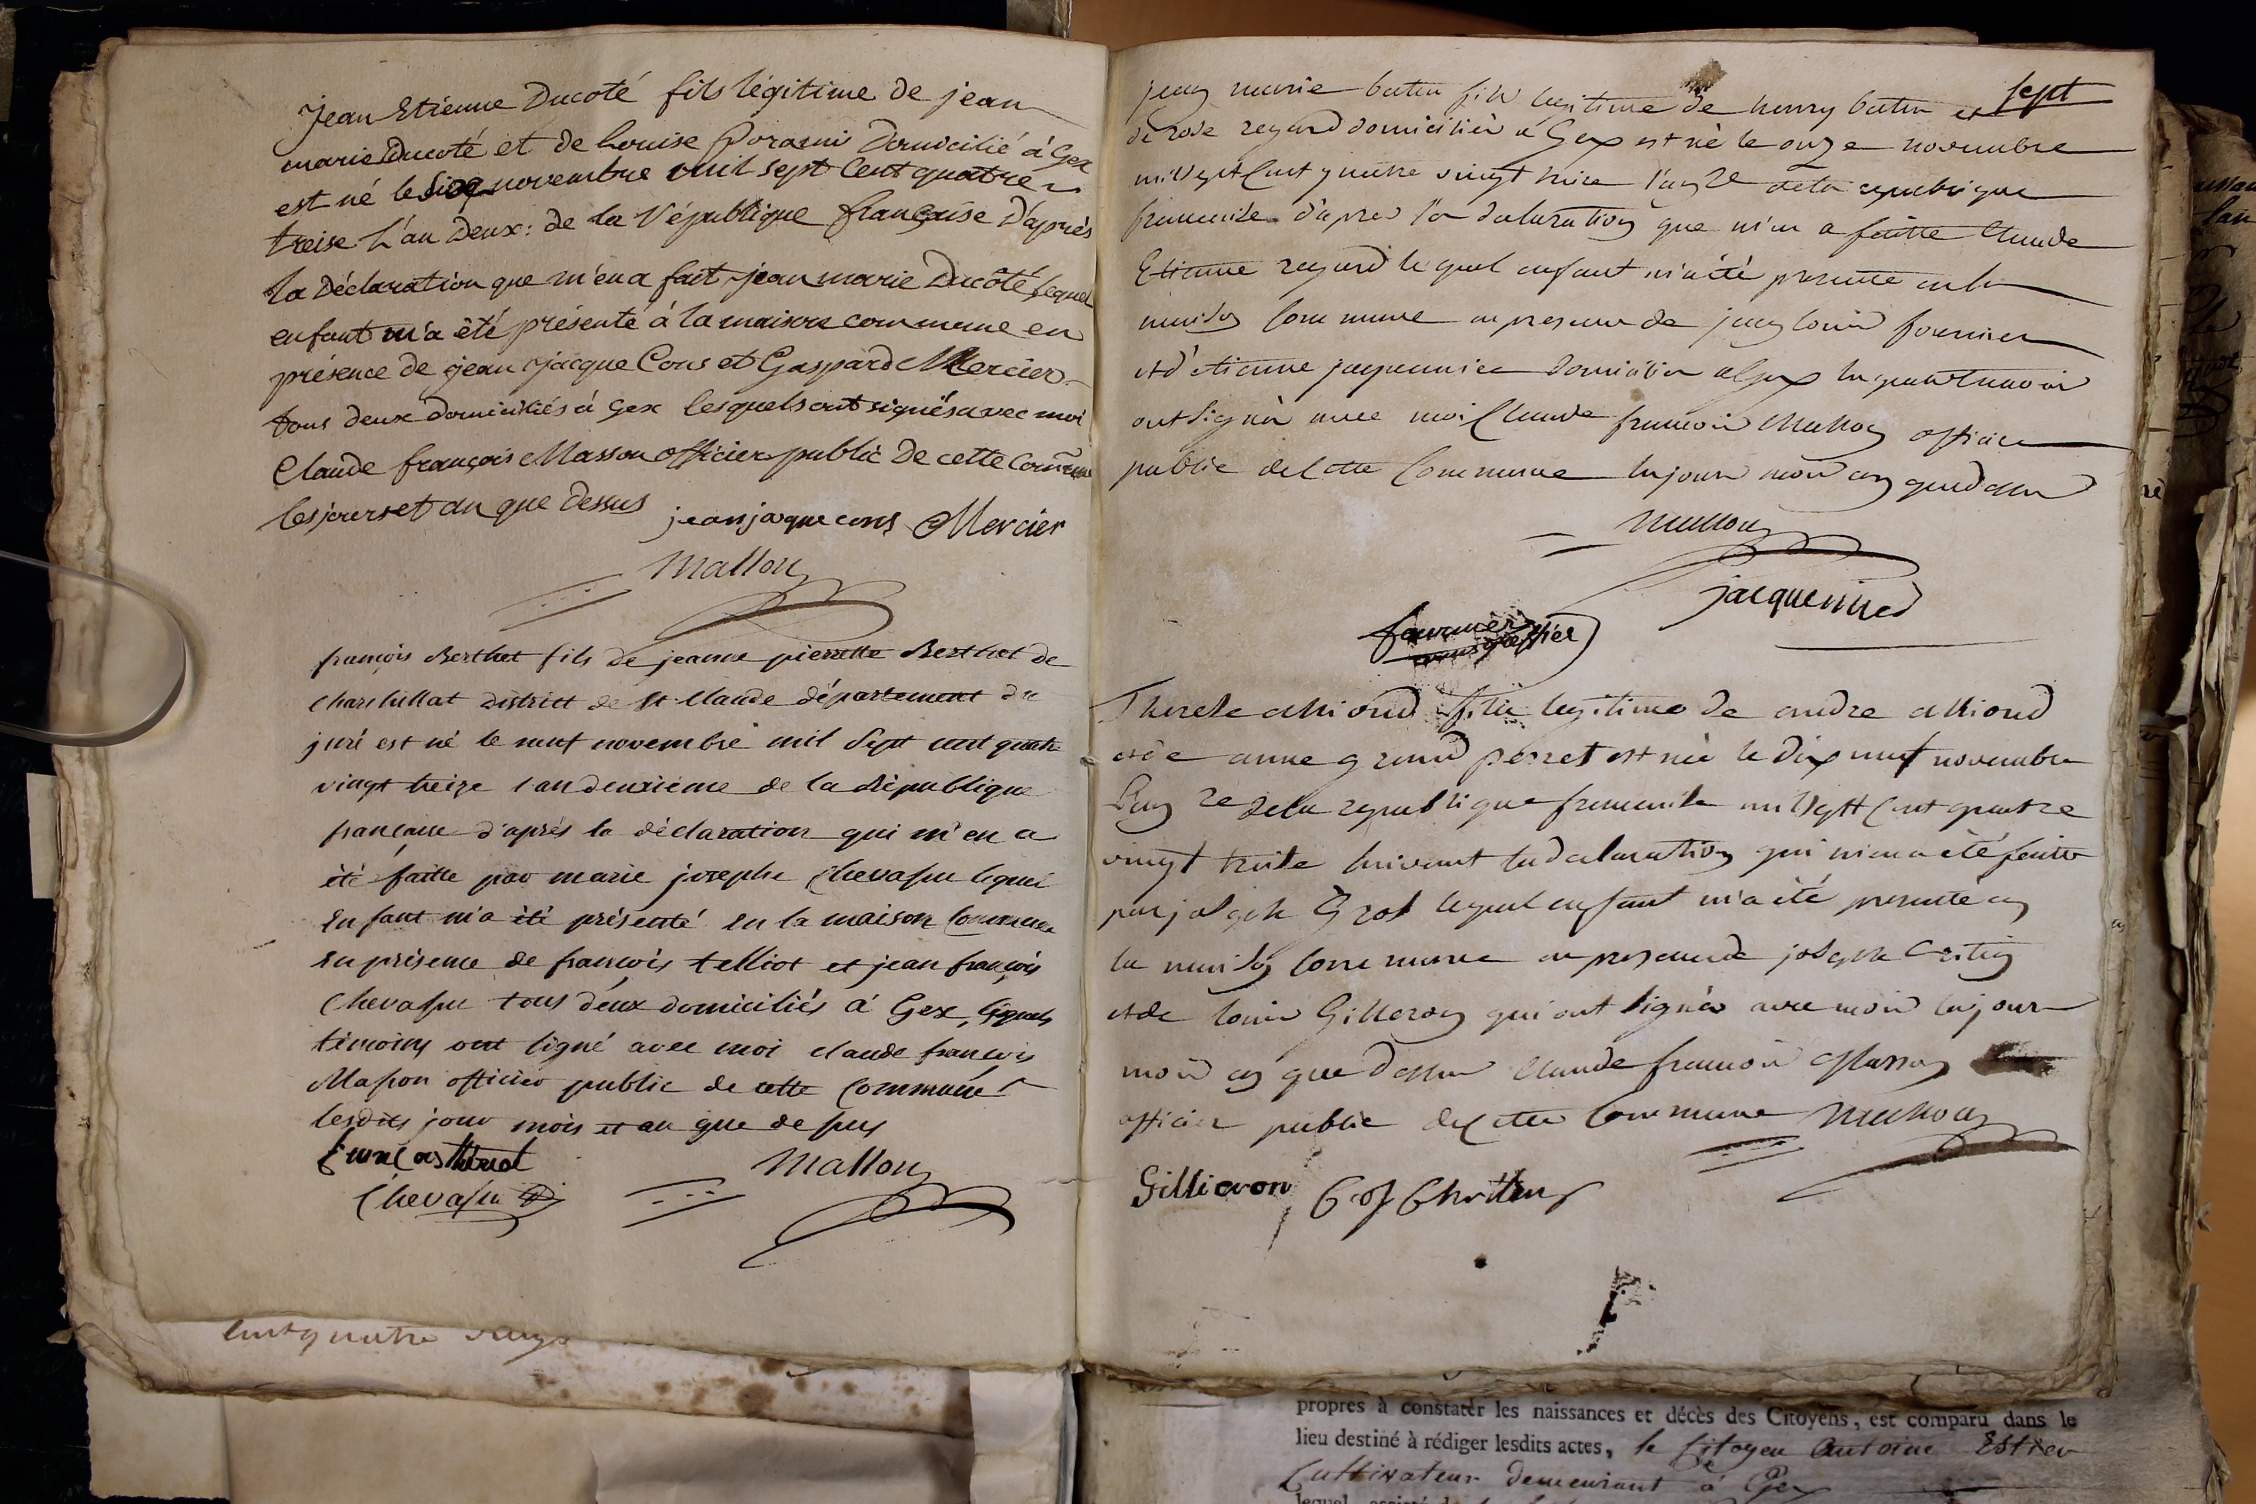 Jean Etienne Ducoté fils légitime de jean
marie Ducoté et de Louise Domicilié à Gex
est né le novembre mil sept Cent quatre
treise L'an Deux: de la République française D'après
la Déclaration que m'en a fait jean marie Ducôté lequel
enfant m'a êté présenté à la maison commune en
présence de jean jacque Cons et Gaspard Mercier
tous deux domiciliés à Gex lesquels ont signés avec moi
Claude françois Masson officier public De cette Comune
les jours et an que Dessus jean jaque cons Mercier
Masson
françois Berthet fils de jeanne pierrette Berthet de
district de St Claude département du
jura est né le neuf novembre mil Sept cent quatre
vingt treize l'an deuxième de la République
française d'aprés la déclaration qui m'en a
été faitte par marie josephe Chevassu lequel
enfant m'a été présenté en la maison Commune
en présence de françois telliot et jean françois
Chevassu tous deux domiciliés à Gex, lesquels
témoins ont signé avec moi claude françois
Masson officier public de cette Commune
lesdits jour mois et an que dessus
Masson
Chevassu
sept
jean marie batin fils legitime de henry batin et
de rose regard domicilié à Gex est né le onze novembre
mil sept Cent quatre vingt treize l'an 2e de la republique
francaise d'apres la declaration que m'en a faitte Claude
Etienne regard lequel enfant m'a été presenté en la
maison Commune en presence de jean louis fournier
et d'etienne jacquemier domicilies a Gex lesquels
ont signés avec moi Claude francois Masson officier
public de Cette Commune les jours mois an que dessus
Masson
jacquemier
fournier
Therese Alliond fille legitime de andre Alliond
et de anne grand perret est née le dix neuf novembre
L'an 2e de la republique francaise mil sept Cent quatre
vingt treize suivant la declaration qui m'en a été faitte
par joseph Gros lequel enfant m'a été presenté en
la maison Commune en presence de joseph
et de louis Gilleron qui ont signés avec moi les jours
mois an que dessus Claude francois Masson
officier public de Cette Commune Masson
Gillieron
Cent quatre vingt
propres à constater les naissances et décès des Citoyens, est comparu dans le
lieu destiné à rédiger lesdits actes, le Citoyen Antoine Estier
Cultivateur demeurant à Gex